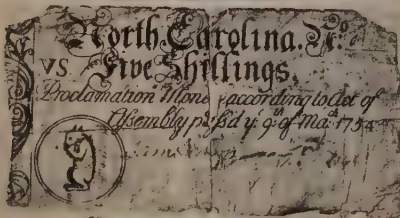 North Carolina. No.
VS. Five Shillings.
Proclamation Mone according to Act of
Assembly pass'd ye 9th of Mar. 1754